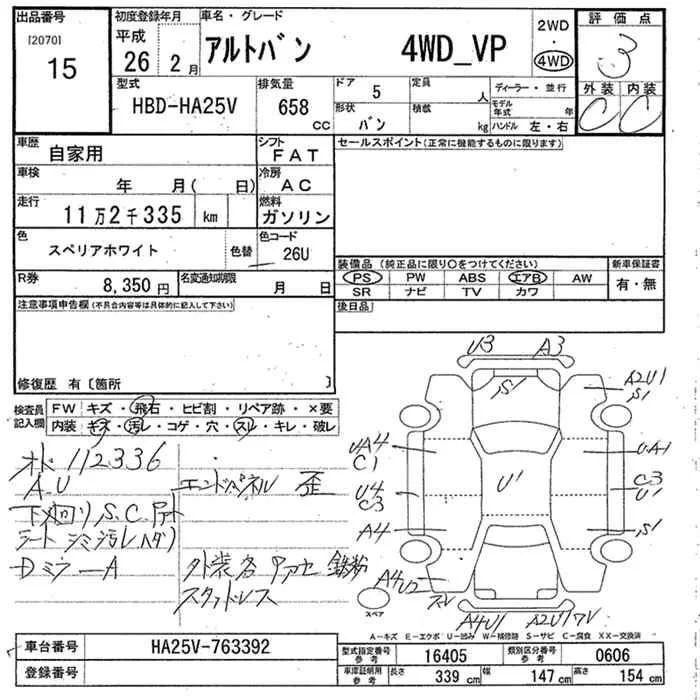 出品番号
[2070]
15
初度登録年月
平成
26 2月
車名・グレード
アルトバン 4WD_VP
2WD
・
4WD
評価点
3
外装 内装
C C
型式
HBD-HA25V
排気量
658 cc
ドア 5
形状 バン
定員 人
積載 kg
ディーラー・並行
モデル年式 年
ハンドル 左・右
車歴 自家用
シフト FAT
車検 年 月( 日)
冷房 AC
走行 11万2千335 km
燃料 ガソリン
色 スペリアホワイト 色替
色コード 26U
R券 8,350円
名変通知期限 月 日
セールスポイント(正常に機能するものに限ります)
装備品 (純正品に限り〇をつけてください)
PS PW ABS エアB AW
SR ナビ TV カワ
新車保証書
有・無
後日品
注意事項申告欄(不具合内容等は具体的に記入して下さい)
修復歴 有〔箇所 〕
検査員記入欄
FW キズ・飛石・ヒビ割・リペア跡・×要
内装 キズ・汚レ・コゲ・穴・スレ・キレ・破レ
オド 112336
A.U エンドパネル 歪
下廻り S.C.
シート シミ汚レ
Dミラー A 外装各 鉄粉
スタッドレス
U3 A3
S1
A2U1
S1
UA4
C1
UA1
U1
U4
C3
C3
U1
A4
S1
A4U2
スレ
スペア
A4U1 A2U1W
A-キズ E-エクボ U-凹み W-補修跡 S-サビ C-腐食 XX-交換済
車台番号 HA25V-763392
登録番号
型式指定番号 参考 16405
類別区分番号 参考 0606
車庫証明用 参考 長さ 339 cm 幅 147 cm 高さ 154 cm